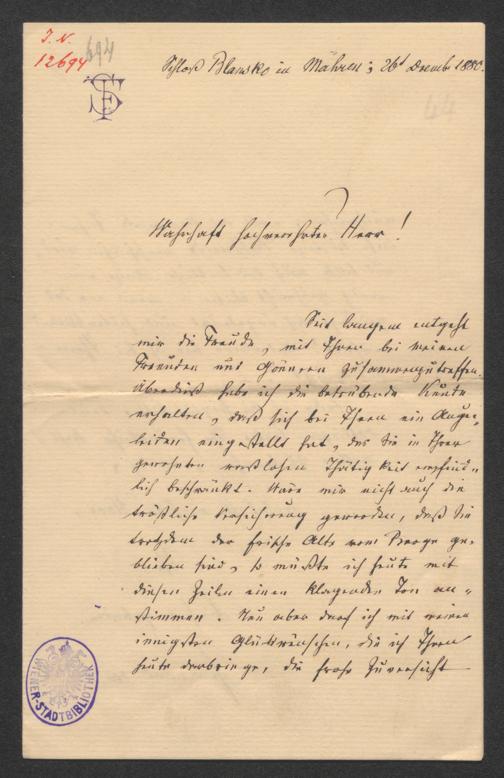 I. N.
12694
694
Schloß Blansko in Mähren; 26t Decemb. 1880.
44
FS
Wahrhaft hochverehrter Herr!
Seit langem entgeht
mir die Freude, mit Ihnen bei meinen
Freunden und Gönnern zusammenzutreffen.
Überdieß habe ich die betrübende Kunde
erhalten, daß sich bei Ihnen ein Augen-
leiden eingestellt hat, das Sie in Ihrer
gewohnten rastlosen Thätigkeit empfind-
lich beschränkt. Wäre mir nicht auch die
tröstliche Versicherung geworden, daß Sie
trotzdem der frische Alte vom Berge ge-
blieben sind, so müßte ich heute mit
diesen Zeilen einen klagenden Ton an-
stimmen. Nun aber darf ich mit meinen
innigsten Glückwünschen, die ich Ihnen
heute darbringe, die frohe Zuversicht
WIENER-STADTBIBLIOTHEK